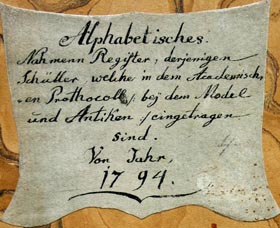 Alphabetisches.
Nahmenn Register, derjenigen
Schüller, welche in dem Academisch,
en Prothocoll /: bej dem Model
und Antiken :/ eingetragen
sind.
Von Jahr,
1794.